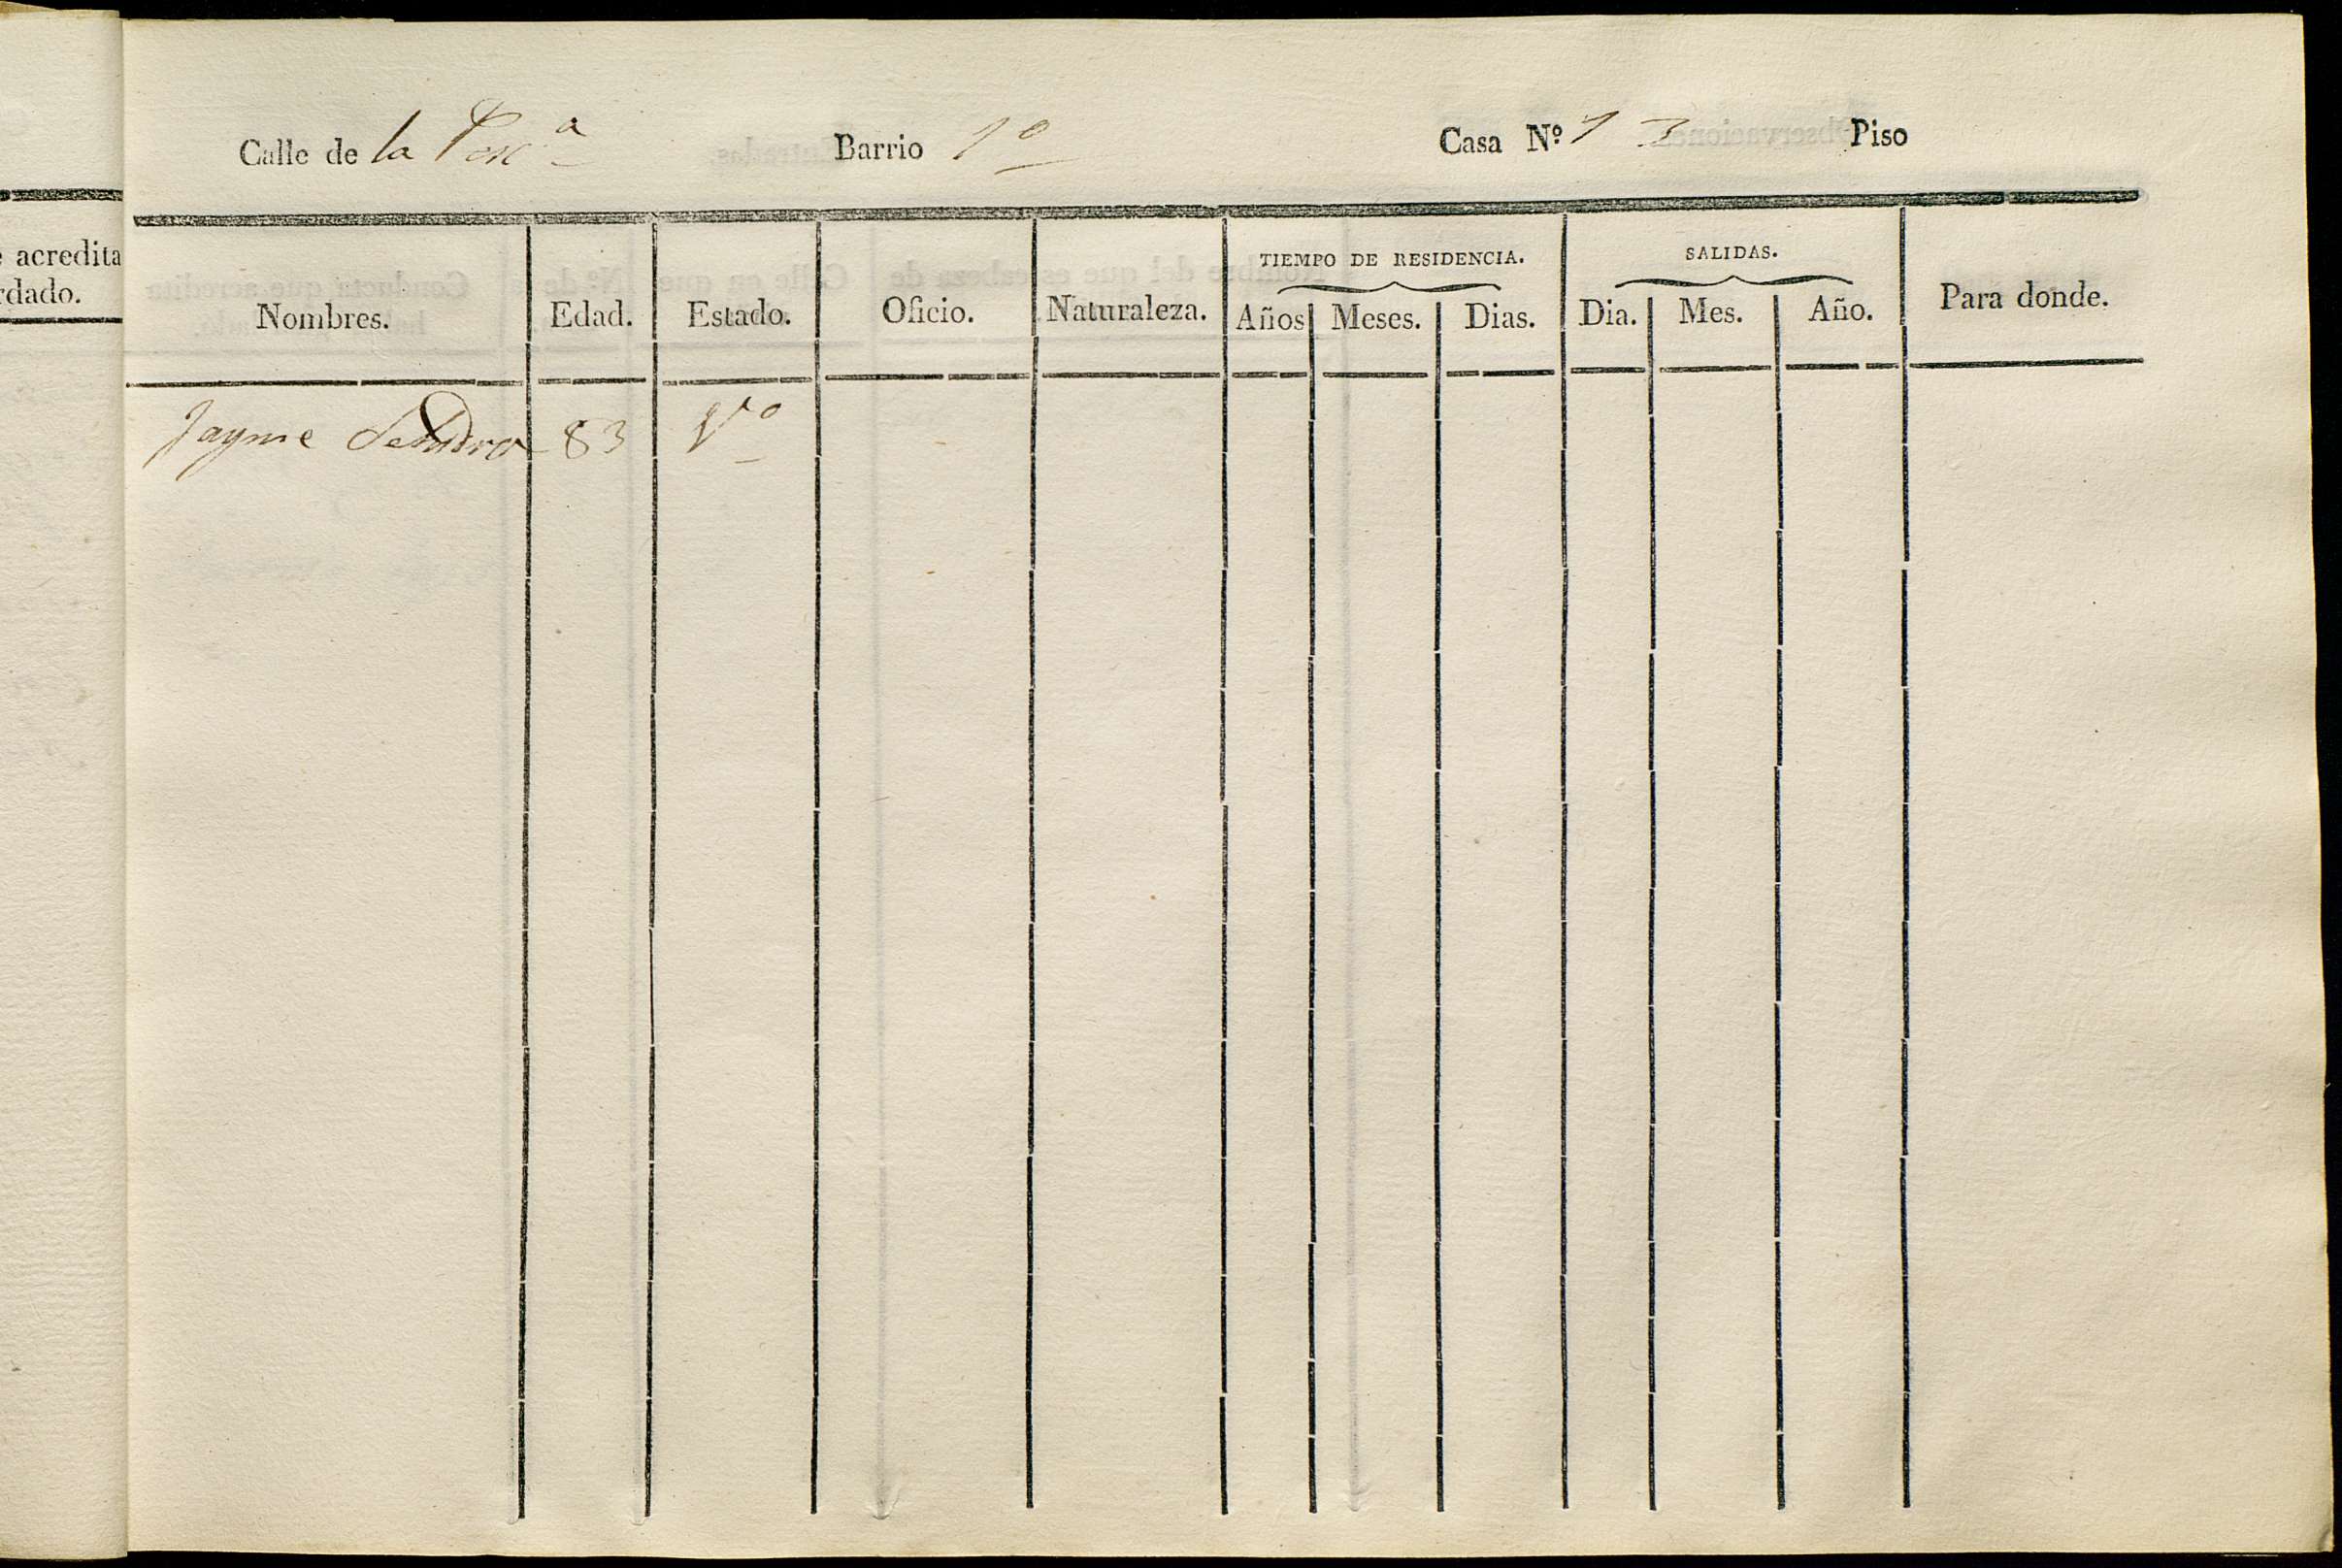 acredita
rdado.
Calle de la Barrio 1º Casa Nº 13 Piso
TIEMPO DE RESIDENCIA. SALIDAS.
Nombres. Edad. Estado. Oficio. Naturaleza. Años Meses. Dias. Dia. Mes. Año. Para donde.
Jayme 83 Vº